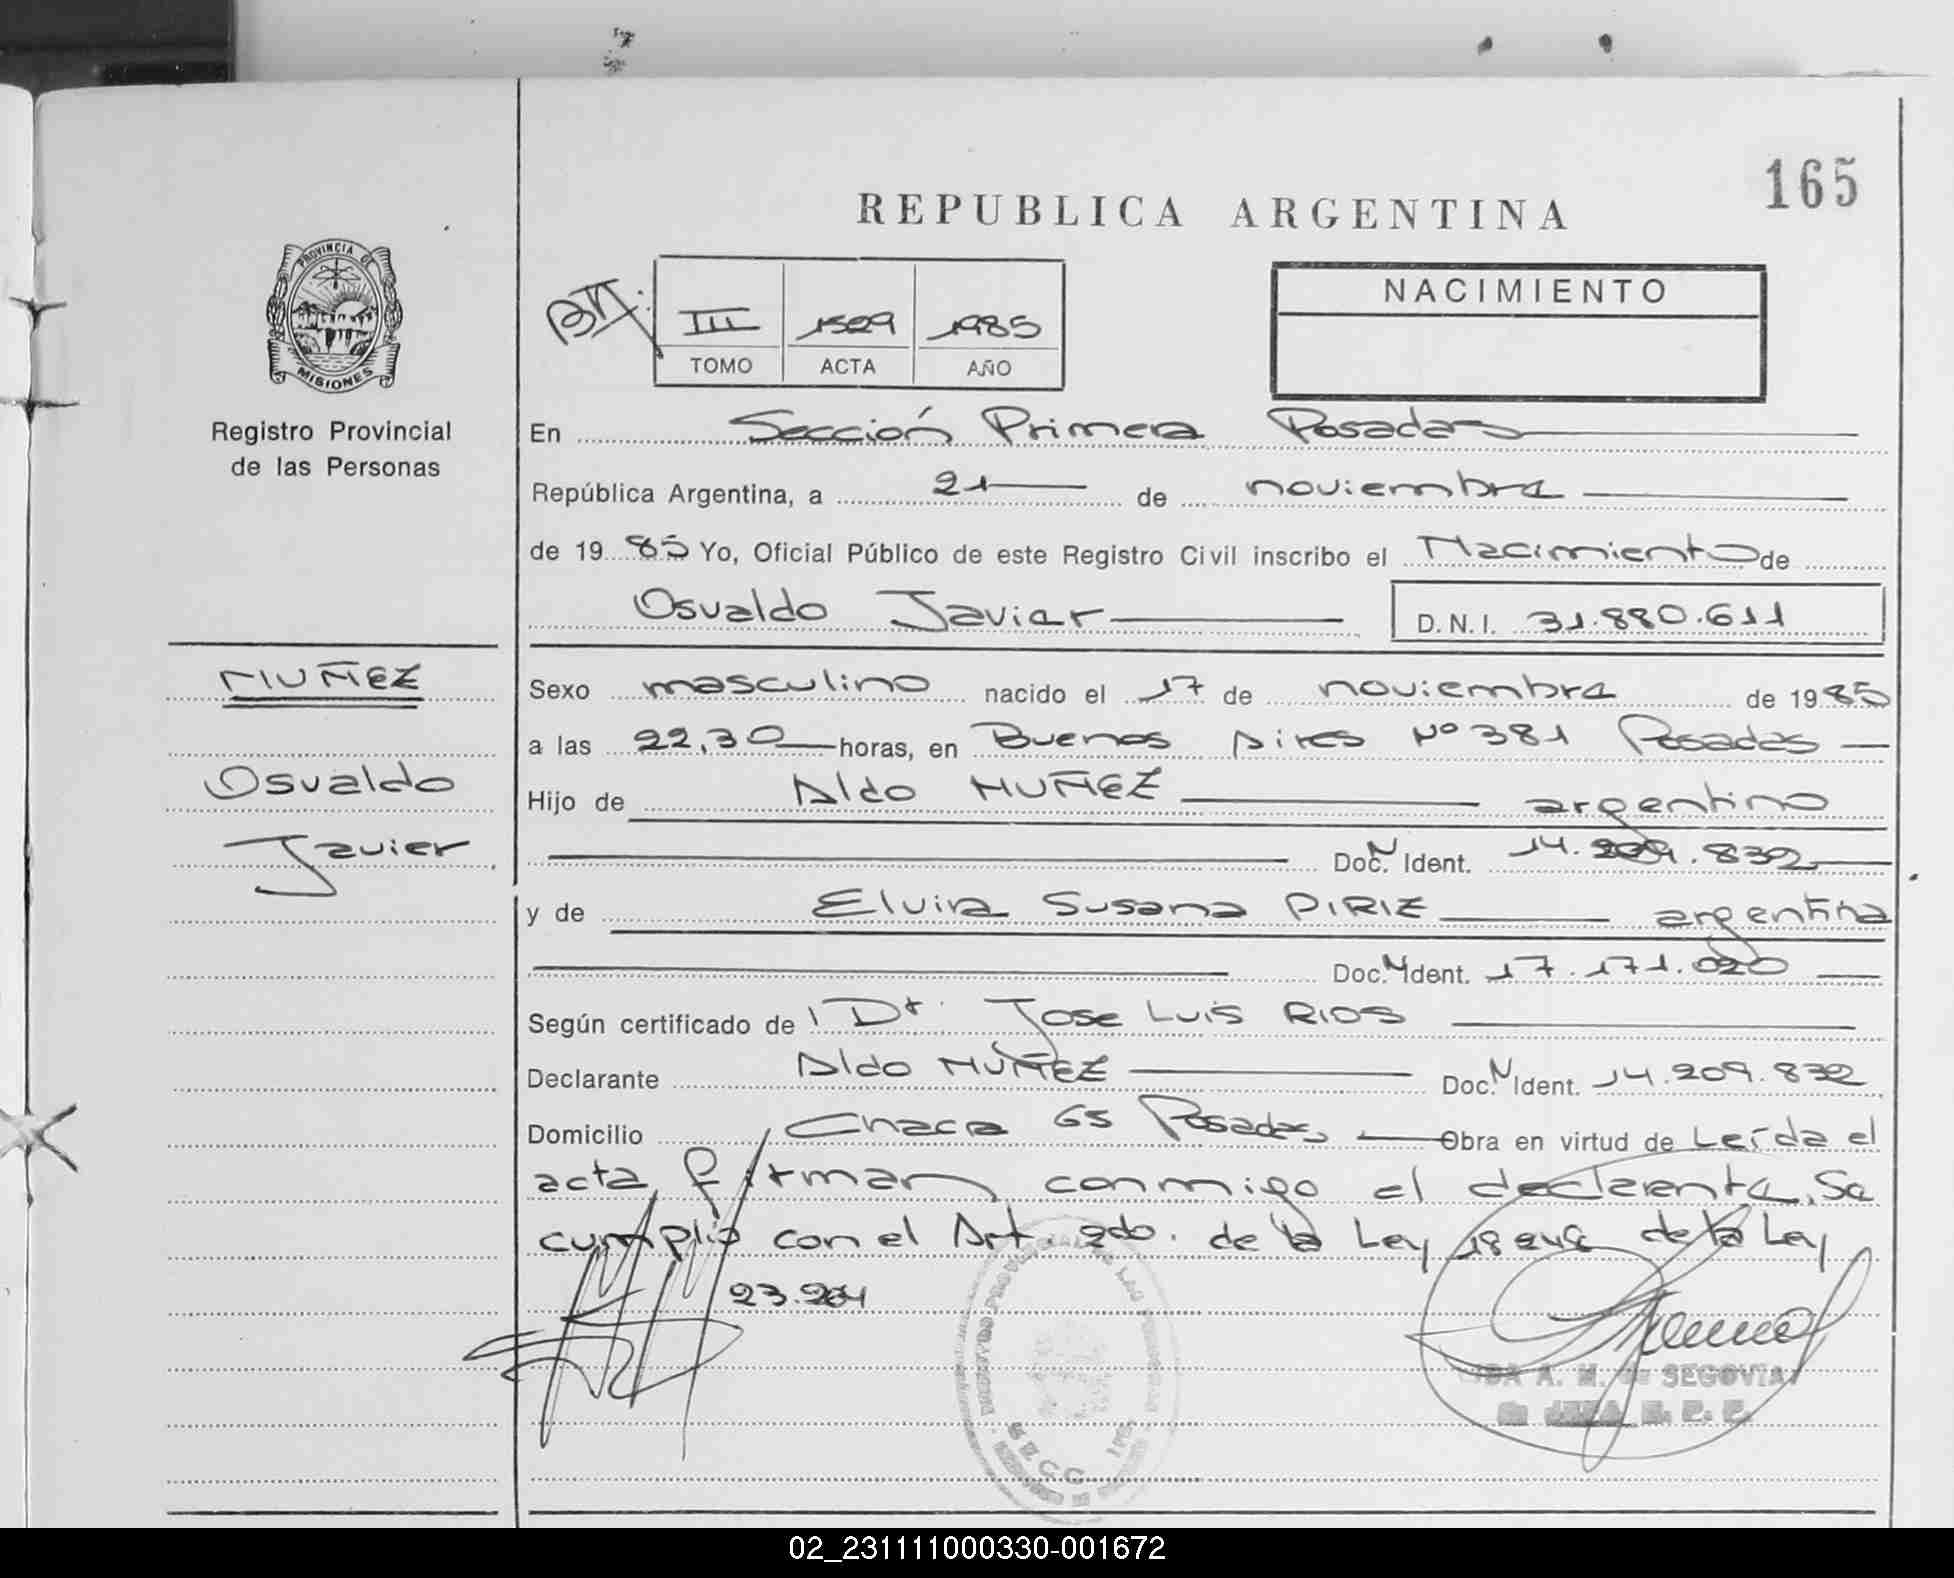 165
REPUBLICA ARGENTINA
PROVINCIA DE
MISIONES
Registro Provincial
de las Personas
NACIMIENTO
III 1529 1985
TOMO ACTA AÑO
En Sección Primera Posadas
República Argentina, a 21 de noviembre
de 1985 Yo, Oficial Público de este Registro Civil inscribo el Nacimiento de
Osvaldo Javier D.N.I. 31.880.611
MUÑEZ
Osvaldo
Javier
Sexo masculino nacido el 17 de noviembre de 1985
a las 22,30 horas, en Buenos Aires Nº 381 Posadas
Hijo de Aldo MUÑEZ argentino
Doc. N Ident. 14.209.832
y de Elvira Susana PIRIZ argentina
Doc. N Ident. 17.171.020
Según certificado de Dr. Jose Luis RIOS
Declarante Aldo MUÑEZ Doc. N Ident. 14.209.832
Domicilio Chacra 65 Posadas, Obra en virtud de Leída el
acta firman conmigo el declarente, Se
cumplió con el Art. 2do. de la Ley 18248 de la Ley
23.264
A. M. de SEGOVIA
SECC.
02_231111000330-001672